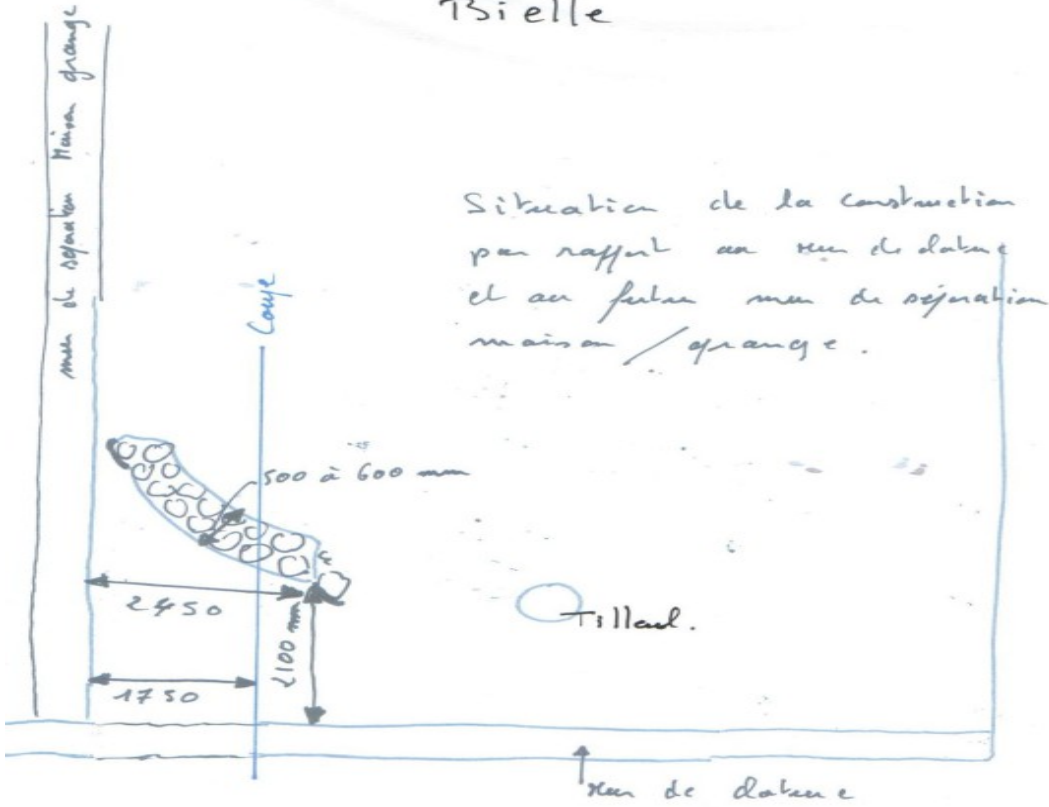 Bielle
mur de séparation Maison grange
Situation de la construction
par rapport au mur de cloture
et au futur mur de séparation
maison / grange.
Coupe
500 à 600 mm
2450
2100 mm
Tilleul.
1750
mur de cloture